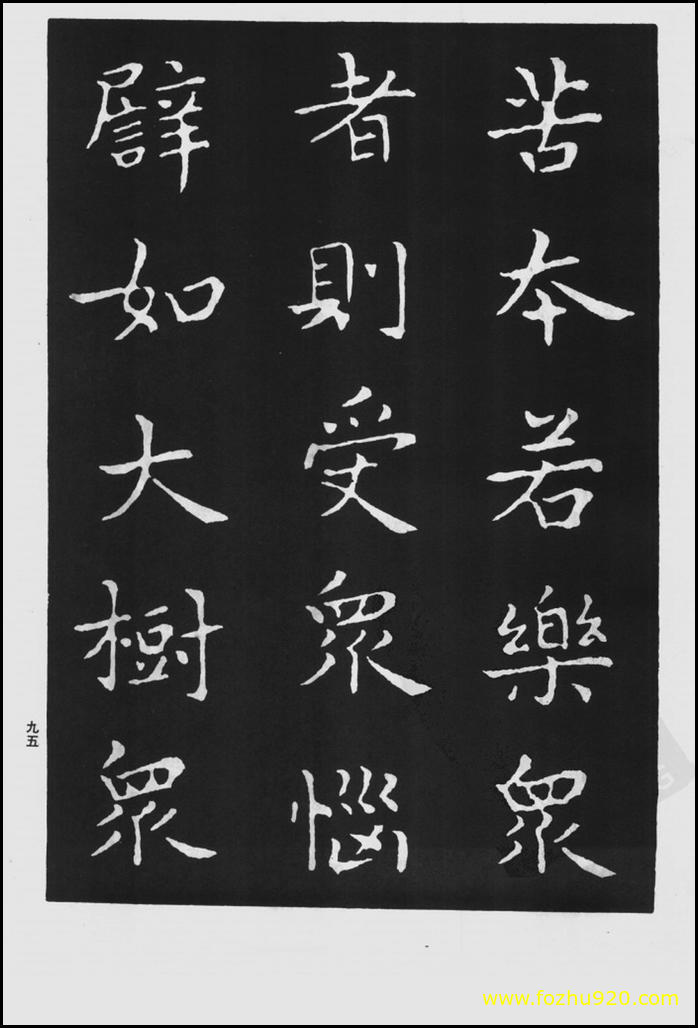 苦本若樂衆
者則受衆惱
譬如大樹衆
九五
www.fozhu920.com